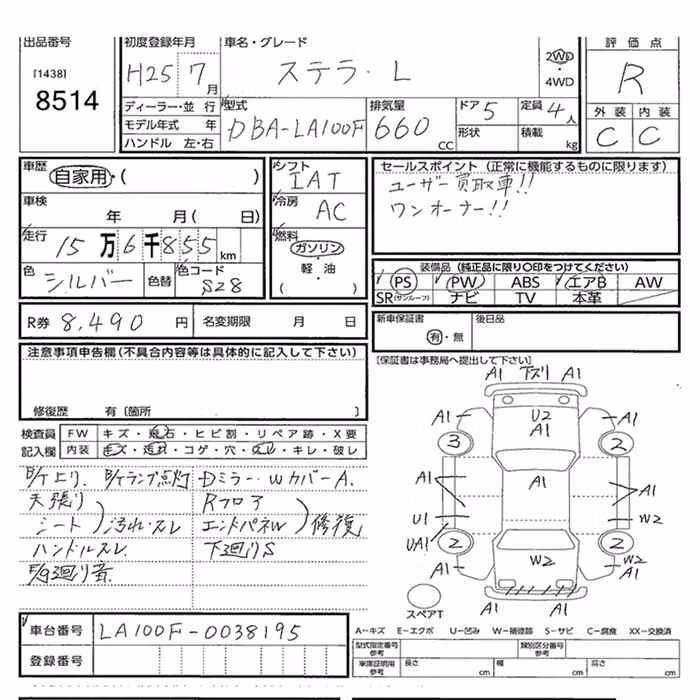 出品番号
[1438]
8514
初度登録年月
H25 7月
車名・グレード
ステラ・L
2WD
・
4WD
ディーラー・並 行
モデル年式 年
ハンドル 左・右
型式
DBA-LA100F
排気量
660 CC
ドア 5
形状
定員 4人
積載 kg
評価点
R
外装 内装
C C
車歴
自家用・( )
車検
年 月( 日)
走行
15万6千855km
色 シルバー 色替 色コード S28
シフト
IAT
冷房
AC
燃料
ガソリン
軽・油
( )
セールスポイント (正常に機能するものに限ります)
ユーザー買取車!!
ワンオーナー!!
装備品 (純正品に限り〇印をつけてください)
PS PW ABS エアB AW
SR(サンルーフ) ナビ TV 本革
R券 8,490 円 名変期限 月 日
新車保証書
有・無
後日品
[保証書は事務局へ提出して下さい]
注意事項申告欄(不具合内容等は具体的に記入して下さい)
修復歴 有〔箇所 〕
検査員
記入欄
FW キズ・飛石・ヒビ割・リペア跡・X要
内装 キズ・汚れ・コゲ・穴・スレ・キレ・破レ
天張り
シート 汚れ・スレ
ハンドルスレ
Dミラー・WカバーA.
Rフロア
エンドパネW 修復
下廻りS
A1 下スリ A1
A1 U2 A1
A1
3 2
A1 A1 A1
U1 W2
UA1
2 2
A1 W2 A1
A1 A1
スペアT
車台番号 LA100F-0038195
登録番号
A―キズ E―エクボ U―凹み W―補修跡 S―サビ C―腐食 XX―交換済
型式指定番号
参考
類別区分番号
参考
車庫証明用
参考
長さ cm 幅 cm 高さ cm